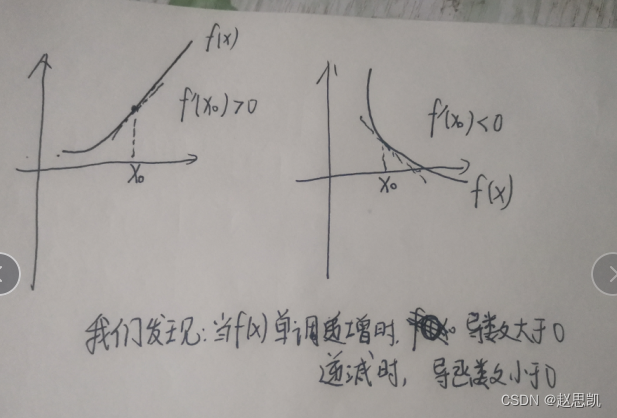 f(x)
f'(x₀)>0
x₀
f'(x₀)<0
x₀
f(x)
我们发现:当f(x)单调递增时, 导数大于0
递减时, 导函数小于0
CSDN @赵思凯